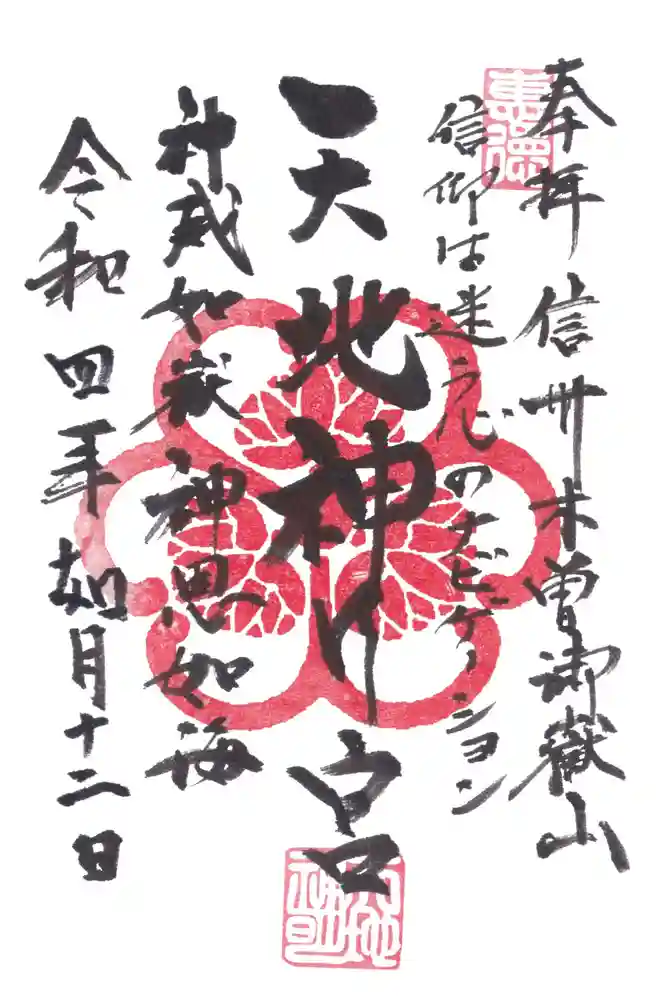 奉拝 信州木曽御嶽山
信仰は迷う心のナビゲーション
天地神明宮
神威如嶽 神恩如海
令和四年如月十二日